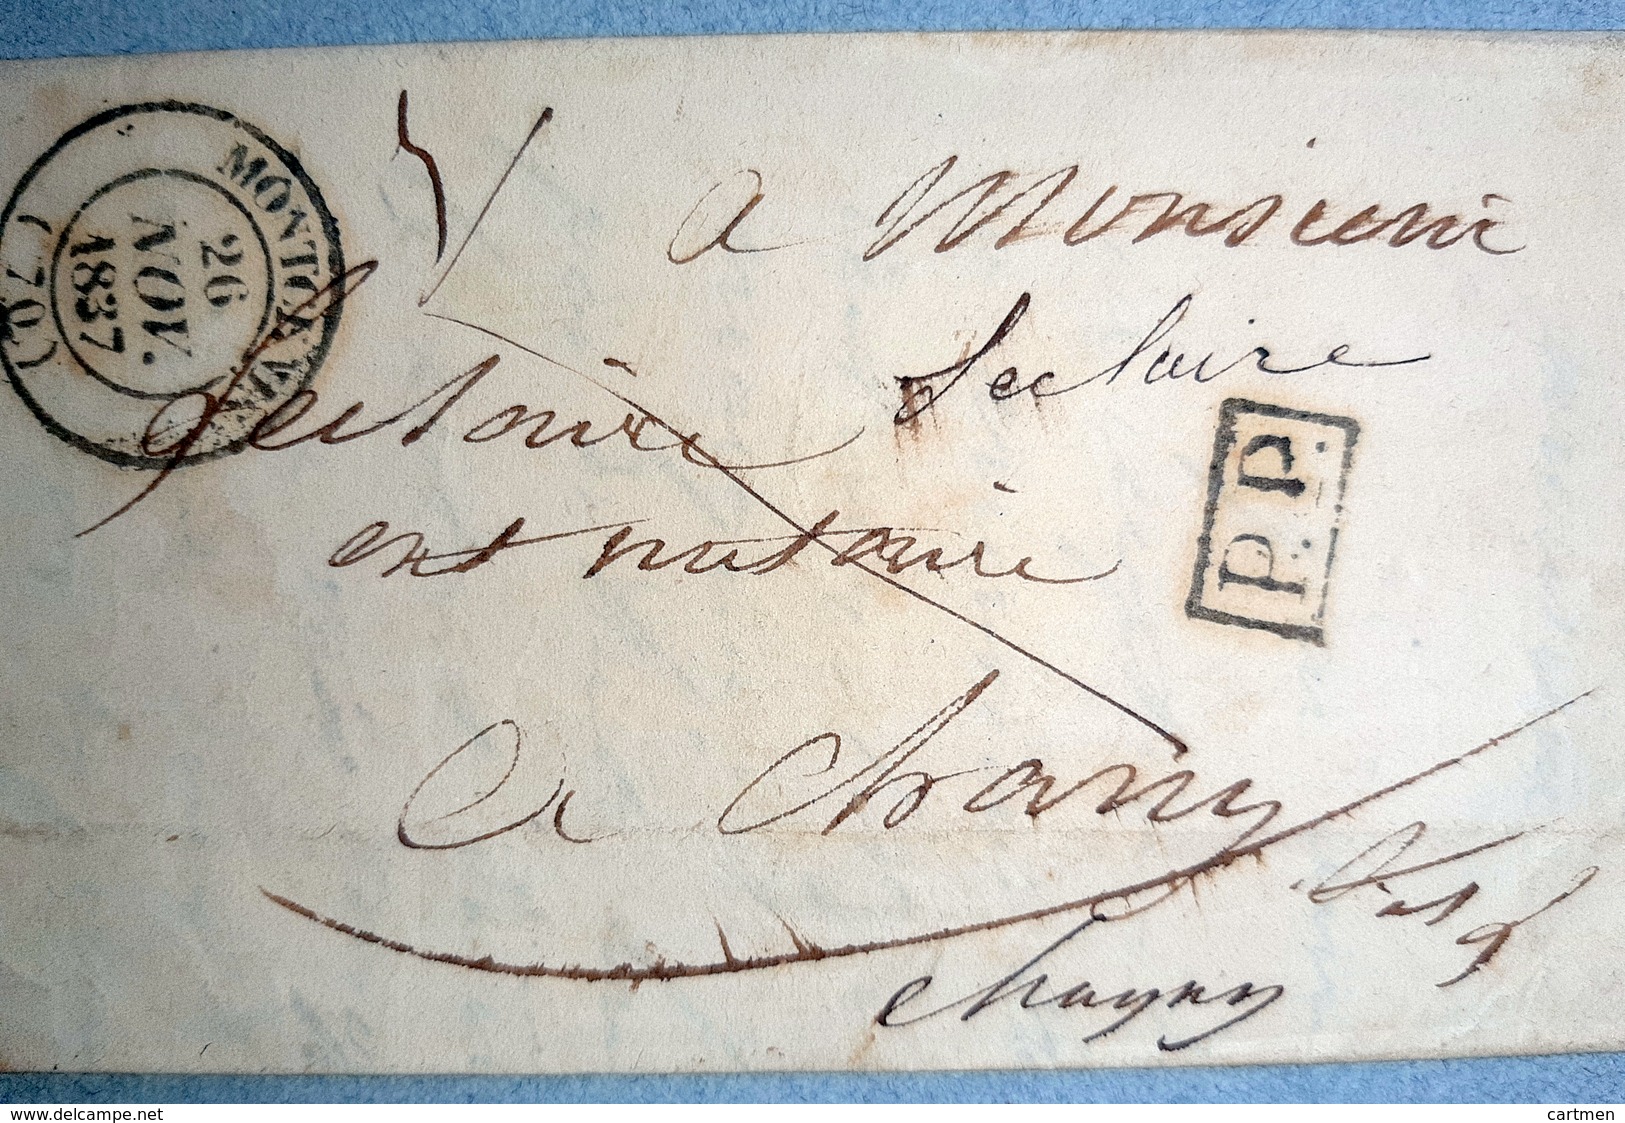 MONTCENIS
26
NOV.
1837
(70)
a Monsieur
Leclaire
Lectoire
est notaire
P.P.
a chany
chagny
www.delcampe.net
cartmen